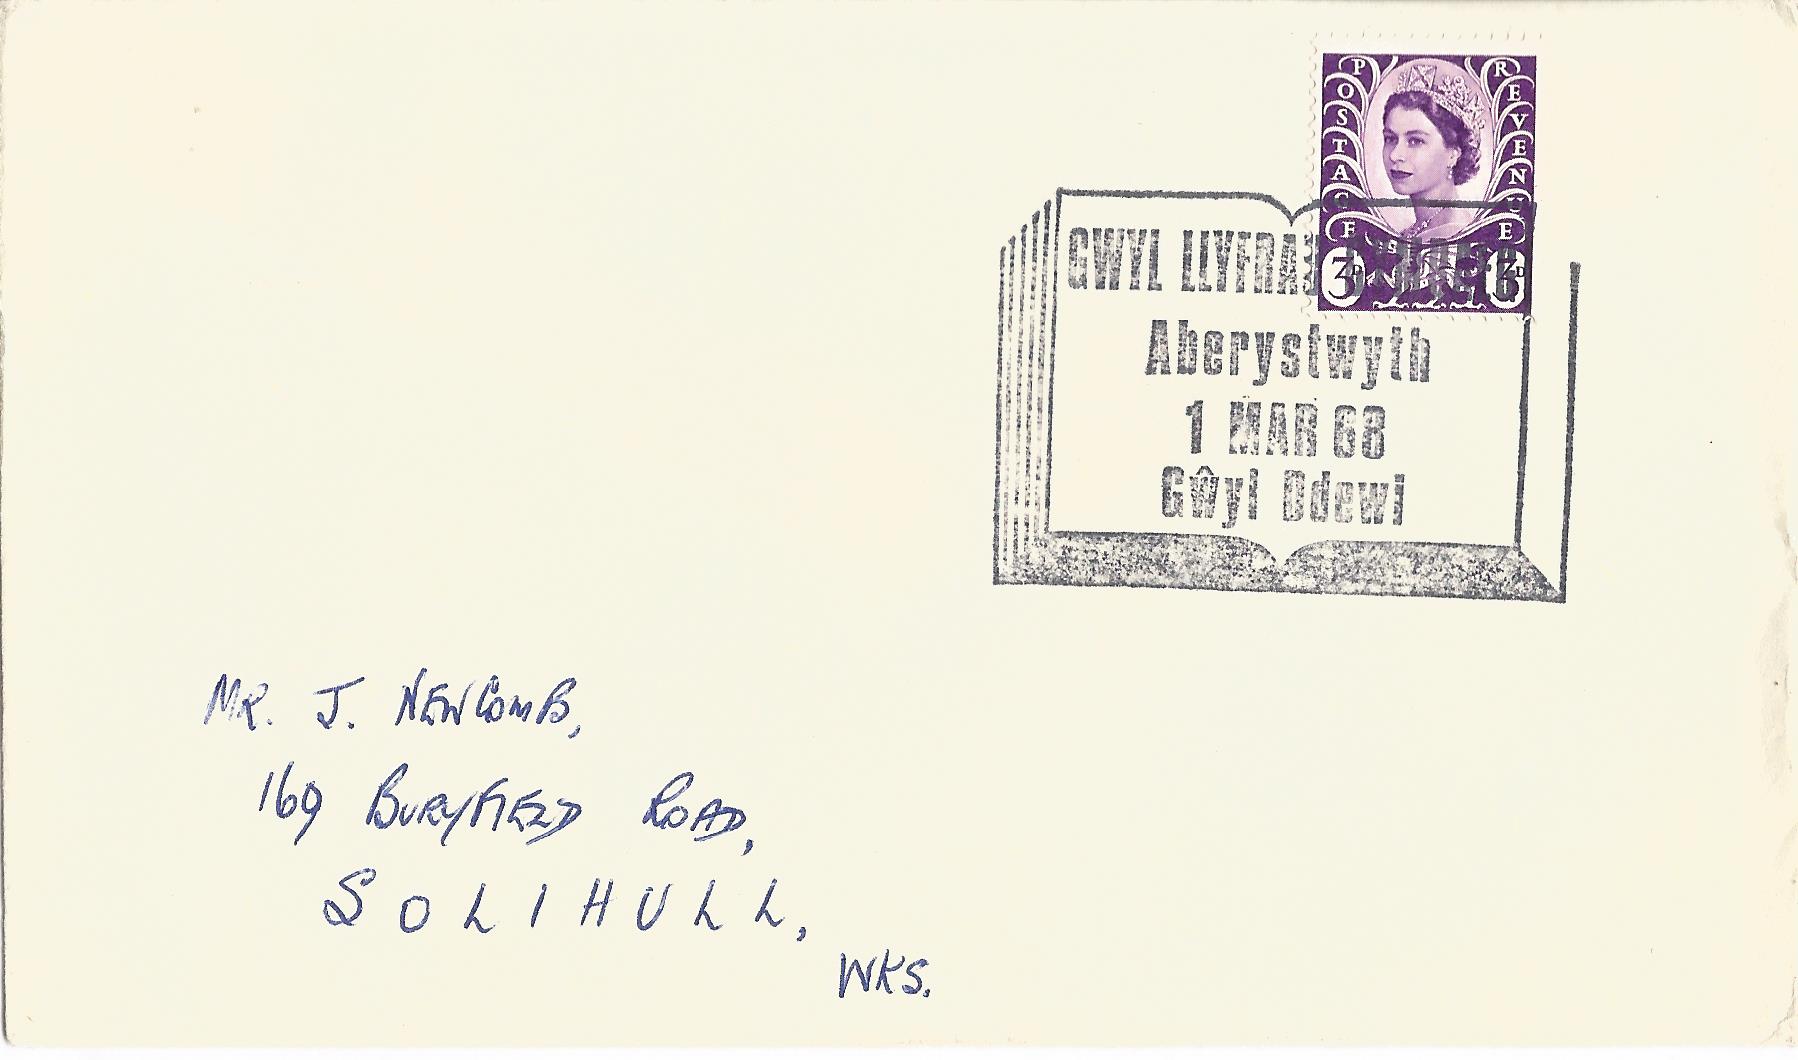 POSTAGE REVENUE
3D 3D
GWYL LLYFRAU
Aberystwyth
1 MAR 68
Gŵyl Ddewi
MR. J. NEWCOMB,
169 BURYFIELD ROAD,
SOLIHULL,
WKS.